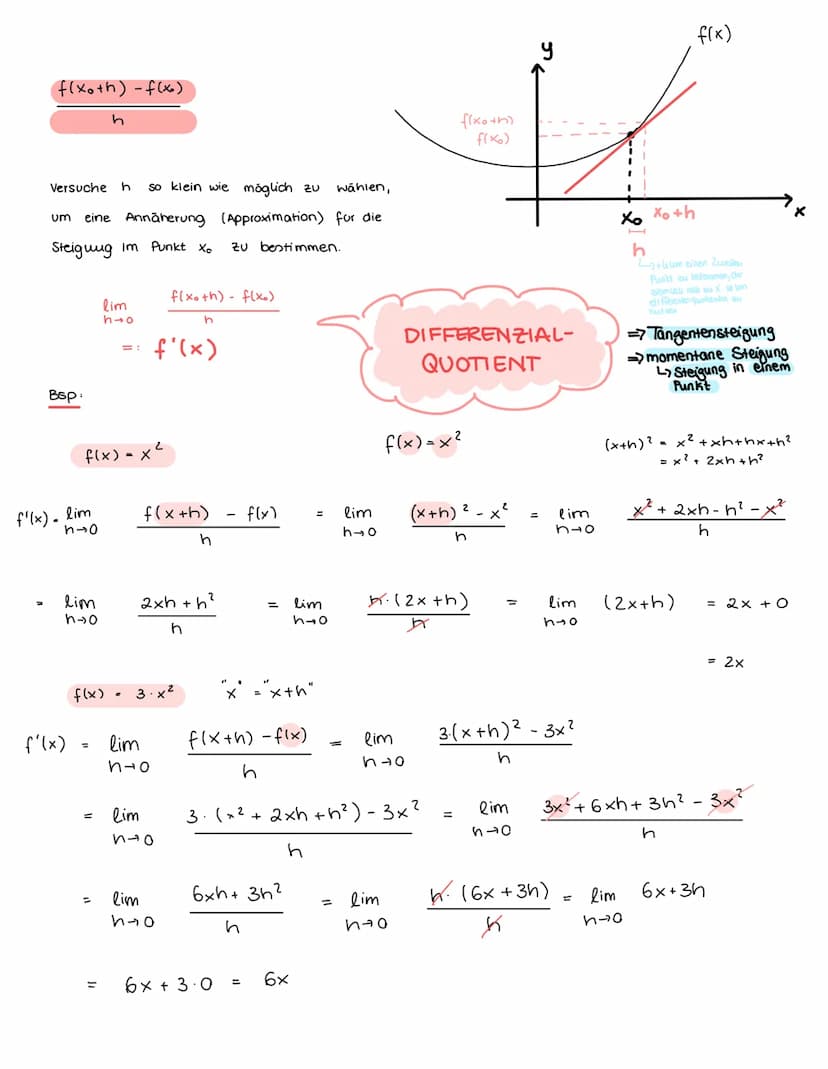 f(x₀+h) - f(x₀)
h
y
f(x)
f(x₀+h)
f(x₀)
x₀ x₀+h
x
h
Versuche h so klein wie möglich zu wählen,
um eine Annäherung (Approximation) für die
Steigung im Punkt x₀ zu bestimmen.
lim h→0 f(x₀+h) - f(x₀) / h
=: f'(x)
DIFFERENZIAL-
QUOTIENT
⇒ Tangentensteigung
⇒ momentane Steigung
↳ Steigung in einem
Punkt
Bsp:
f(x) = x²
f(x) = x²
(x+h)² = x² + xh + hx + h²
= x² + 2xh + h²
f'(x) = lim h→0 f(x+h) - f(x) / h = lim h→0 (x+h)² - x² / h = lim h→0 x² + 2xh - h² - x² / h
= lim h→0 2xh + h² / h = lim h→0 h·(2x+h) / h = lim h→0 (2x+h) = 2x + 0
= 2x
f(x) = 3·x² "x" = "x+h"
f'(x) = lim h→0 f(x+h) - f(x) / h = lim h→0 3·(x+h)² - 3x² / h
= lim h→0 3·(x² + 2xh + h²) - 3x² / h = lim h→0 3x² + 6xh + 3h² - 3x² / h
= lim h→0 6xh + 3h² / h = lim h→0 h·(6x + 3h) / h = lim h→0 6x + 3h
= 6x + 3·0 = 6x